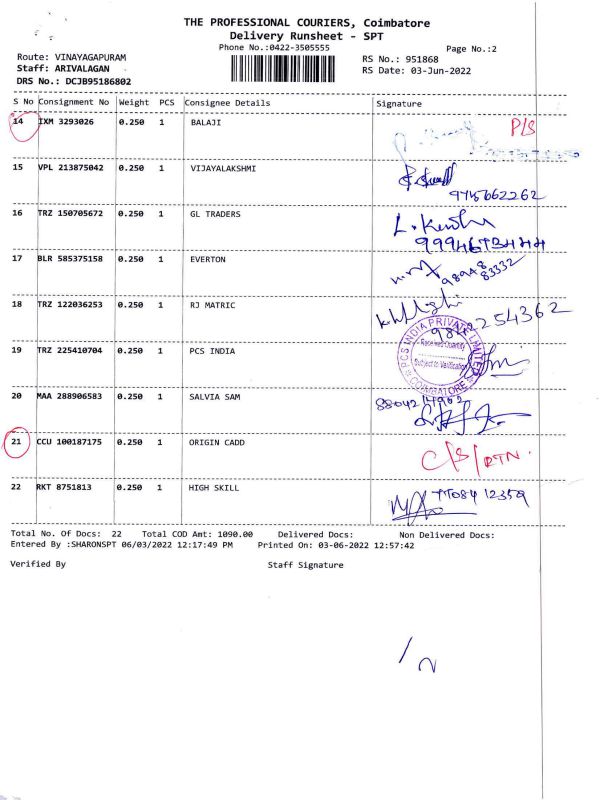 THE PROFESSIONAL COURIERS, Coimbatore
Delivery Runsheet - SPT
Phone No.:0422-3505555
Page No.:2
Route: VINAYAGAPURAM
Staff: ARIVALAGAN
DRS No.: DCJB95186802
RS No.: 951868
RS Date: 03-Jun-2022
S No Consignment No Weight PCS Consignee Details Signature
14 IXM 3293026 0.250 1 BALAJI P/S
15 VPL 213875042 0.250 1 VIJAYALAKSHMI
9715662262
16 TRZ 150705672 0.250 1 GL TRADERS
17 BLR 585375158 0.250 1 EVERTON
98948
83332
18 TRZ 122036253 0.250 1 RJ MATRIC
254362
19 TRZ 225410704 0.250 1 PCS INDIA
PCS INDIA PRIVATE LIMITED
Received Quantity
Subject to Verification
COIMBATORE
20 MAA 288906583 0.250 1 SALVIA SAM
21 CCU 100187175 0.250 1 ORIGIN CADD C/S/RTN.
22 RKT 8751813 0.250 1 HIGH SKILL
Total No. Of Docs: 22 Total COD Amt: 1090.00 Delivered Docs: Non Delivered Docs:
Entered By :SHARONSPT 06/03/2022 12:17:49 PM Printed On: 03-06-2022 12:57:42
Verified By Staff Signature